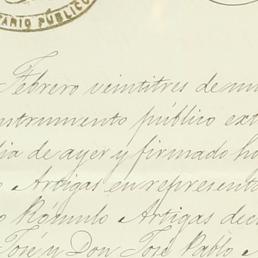 TARIO PÚBLICO
Febrero veintitres de mil
instrumento público ext
dia de ayer y firmado ho
Artigas en represent
Rómulo Artigas dec
José y Don José Pablo A